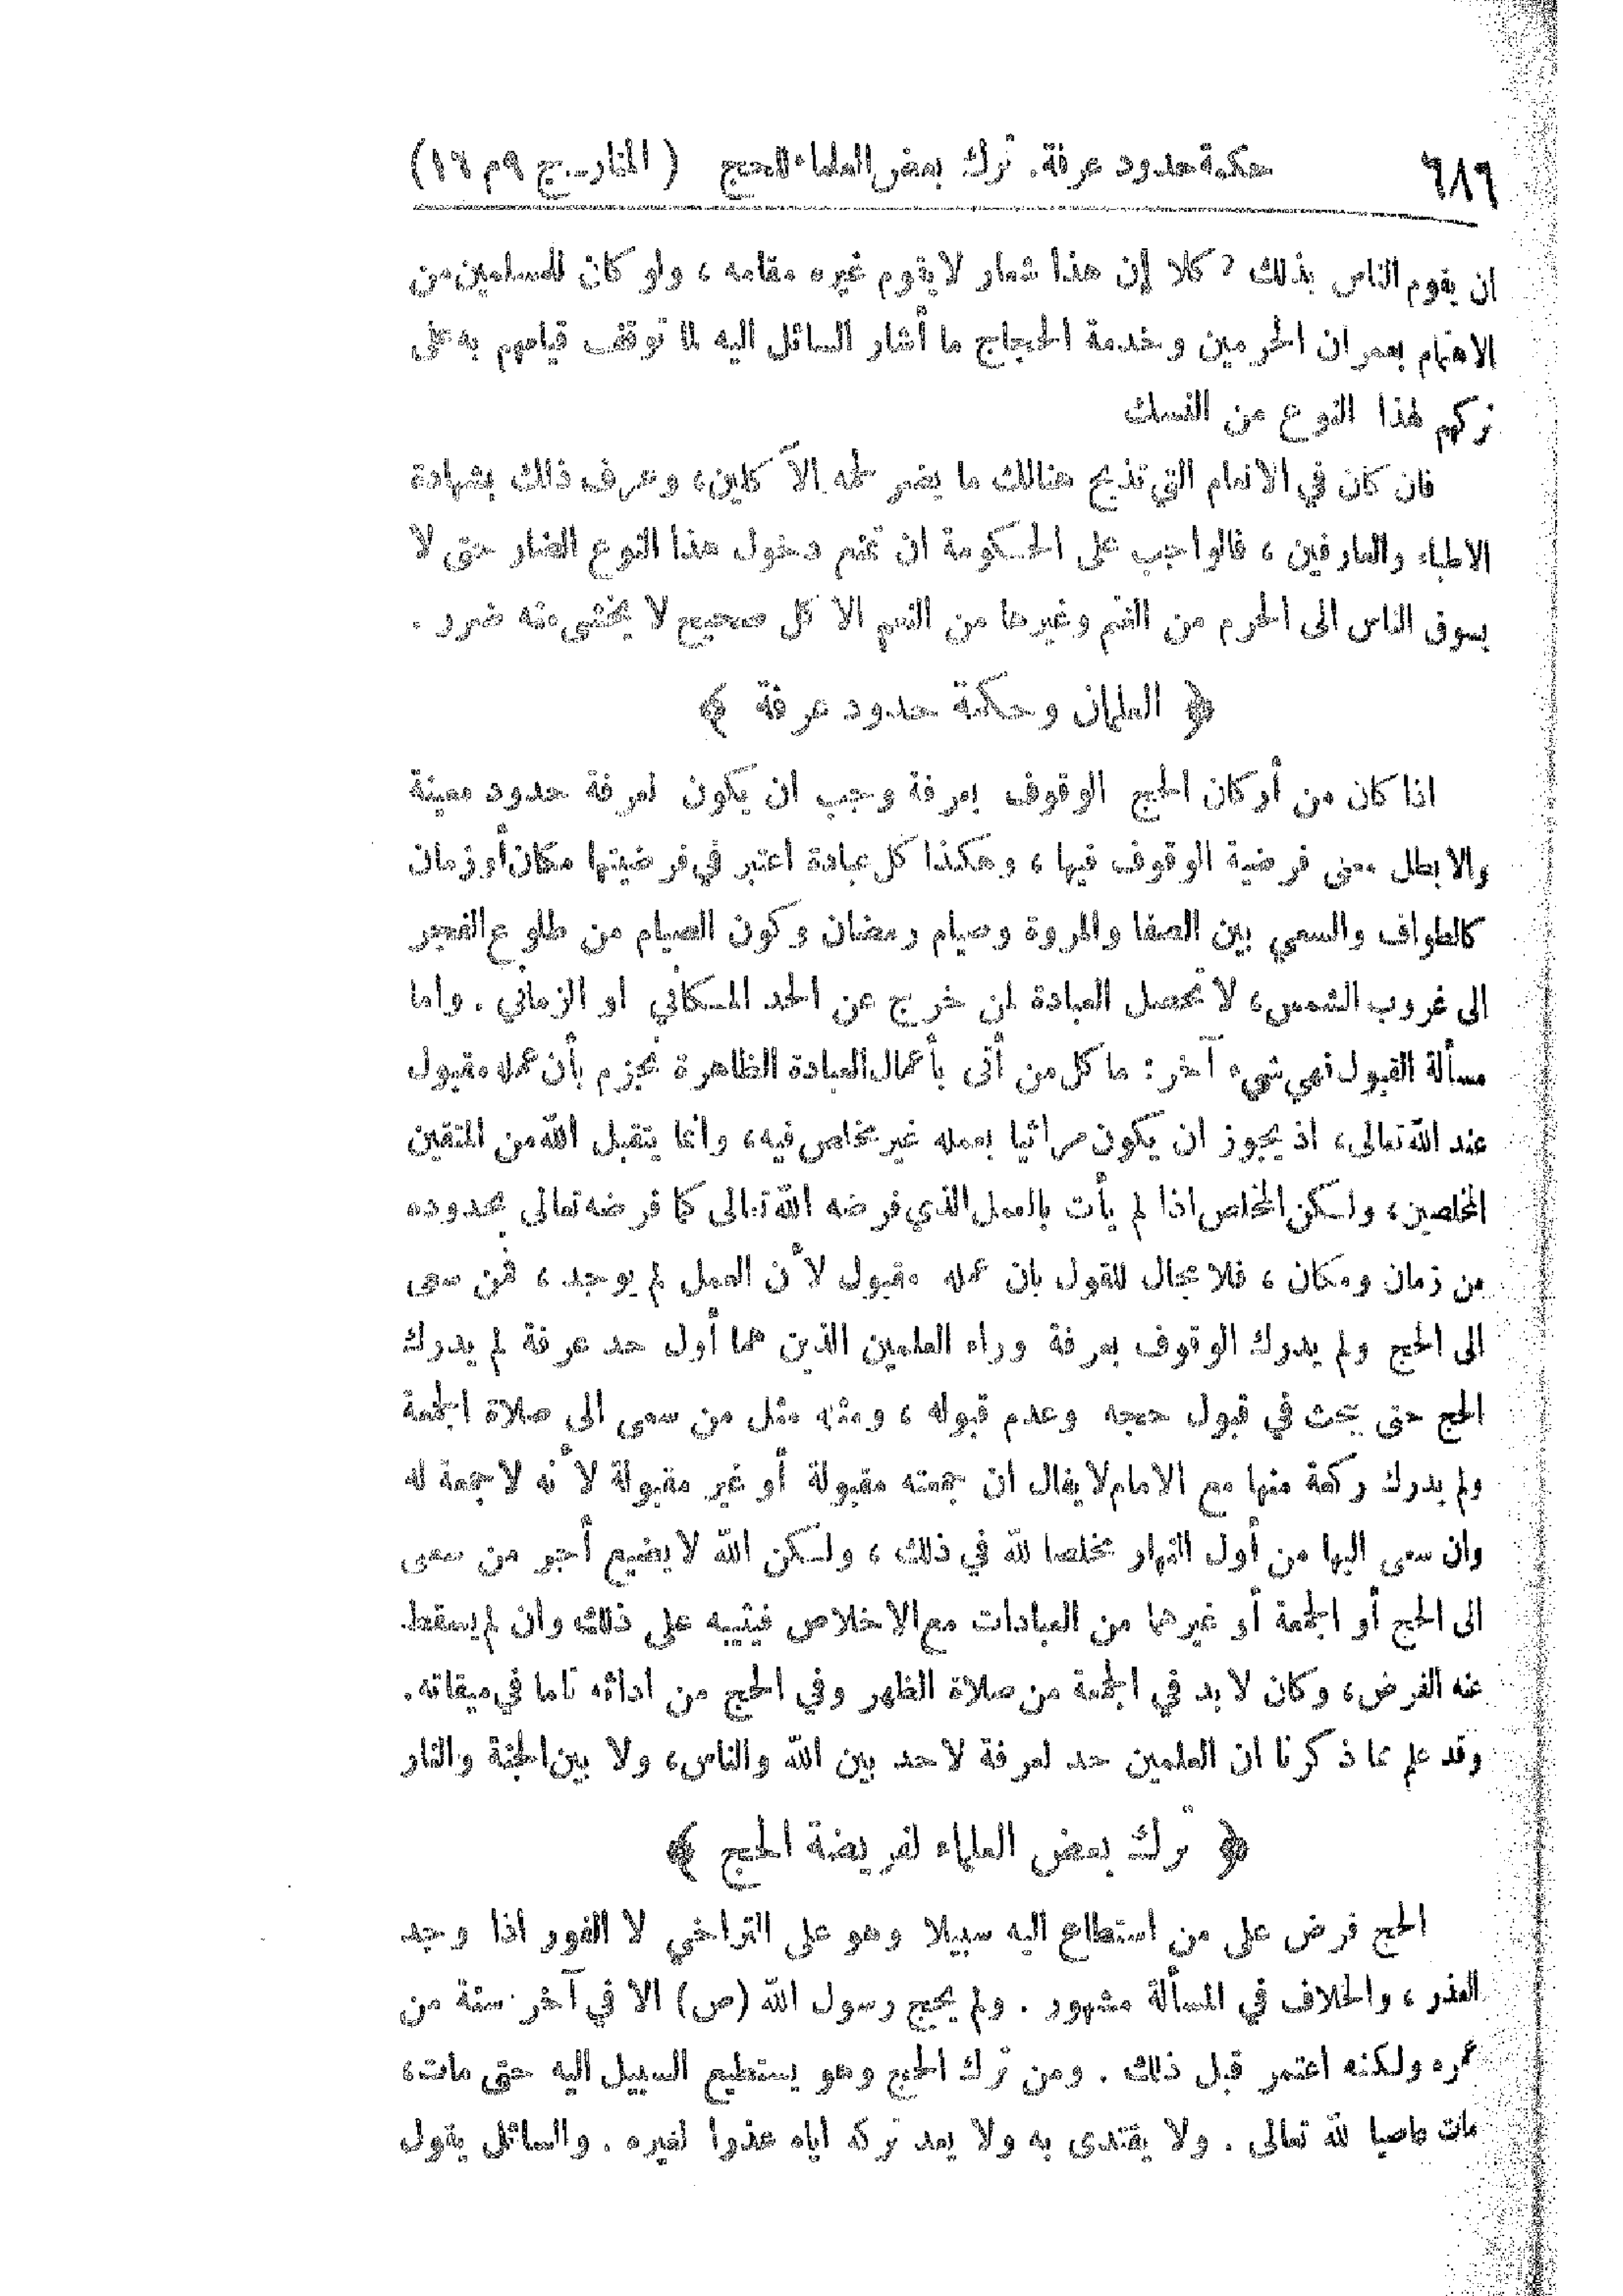 ٦٨٦ حكمة حدود عرفة. ترك بعض العلماء للحج ( المنار ـ ج ٩ م ١٦ )
ان يقوم الناس بذلك ? كلا إن هذا شعار لا يقوم غيره مقامه ، ولو كان للمسلمين من
الاهتمام بعمران الحرمين وخدمة الحجاج ما أشار السائل اليه لما توقف قيامهم به على
تركهم لهذا النوع من النسك
فان كان في الانعام التي تذبح هنالك ما يضر لحمه الآكلين ، وعرف ذلك بشهادة
الاطباء والعارفين ، فالواجب على الحكومة ان تمنع دخول هذا النوع الضار حتى لا
يسوق الناس الى الحرم من الغنم وغيرها من النعم الا كل صحيح لا يخشى منه ضرر .
﴿ العلمان وحكمة حدود عرفة ﴾
اذا كان من أركان الحج الوقوف بعرفة وجب ان يكون لعرفة حدود معينة
والا بطل معنى فرضية الوقوف فيها ، وهكذا كل عبادة اعتبر في فرضيتها مكان أو زمان
كالطواف والسعي بين الصفا والمروة وصيام رمضان وكون الصيام من طلوع الفجر
الى غروب الشمس ، لا تحصل العبادة لمن خرج عن الحد المكاني او الزماني . واما
مسألة القبول فهي شيء آخر : ما كل من أتى بأعمال العبادة الظاهرة نجزم بأن عمله مقبول
عند الله تعالى ، اذ يجوز ان يكون مرائيا بعمله غير مخلص فيه ، وانما يتقبل الله من المتقين
المخلصين ، ولكن المخلص اذا لم يأت بالعمل الذي فرضه الله تعالى كما فرضه تعالى بحدوده
من زمان ومكان ، فلا مجال للقول بان عمله مقبول لأن العمل لم يوجد ، فمن سعى
الى الحج ولم يدرك الوقوف بعرفة وراء العلمين الذين هما أول حد عرفة لم يدرك
الحج حتى يبحث في قبول حجه وعدم قبوله ، ومثله مثل من سعى الى صلاة الجمعة
ولم يدرك ركعة منها مع الامام لا يقال ان جمعته مقبولة أو غير مقبولة لأنه لا جمعة له
وان سعى اليها من أول النهار مخلصا لله في ذلك ، ولكن الله لا يضيع أجر من سعى
الى الحج أو الجمعة أو غيرهما من العبادات مع الاخلاص فيثيبه على ذلك وان لم يسقط
عنه الفرض ، وكان لا بد في الجمعة من صلاة الظهر وفي الحج من ادائه تاما في ميقاته .
وقد علم مما ذكرنا ان العلمين حد لعرفة لا حد بين الله والناس ، ولا بين الجنة والنار
﴿ ترك بعض العلماء لفريضة الحج ﴾
الحج فرض على من استطاع اليه سبيلا وهو على التراخي لا الفور اذا وجد
العذر ، والخلاف في المسألة مشهور . ولم يحج رسول الله (ص) الا في آخر سنة من
عمره ولكنه اعتمر قبل ذلك . ومن ترك الحج وهو يستطيع السبيل اليه حتى مات ،
مات عاصيا لله تعالى . ولا يقتدى به ولا يعد تركه اياه عذرا لغيره . والسائل يقول